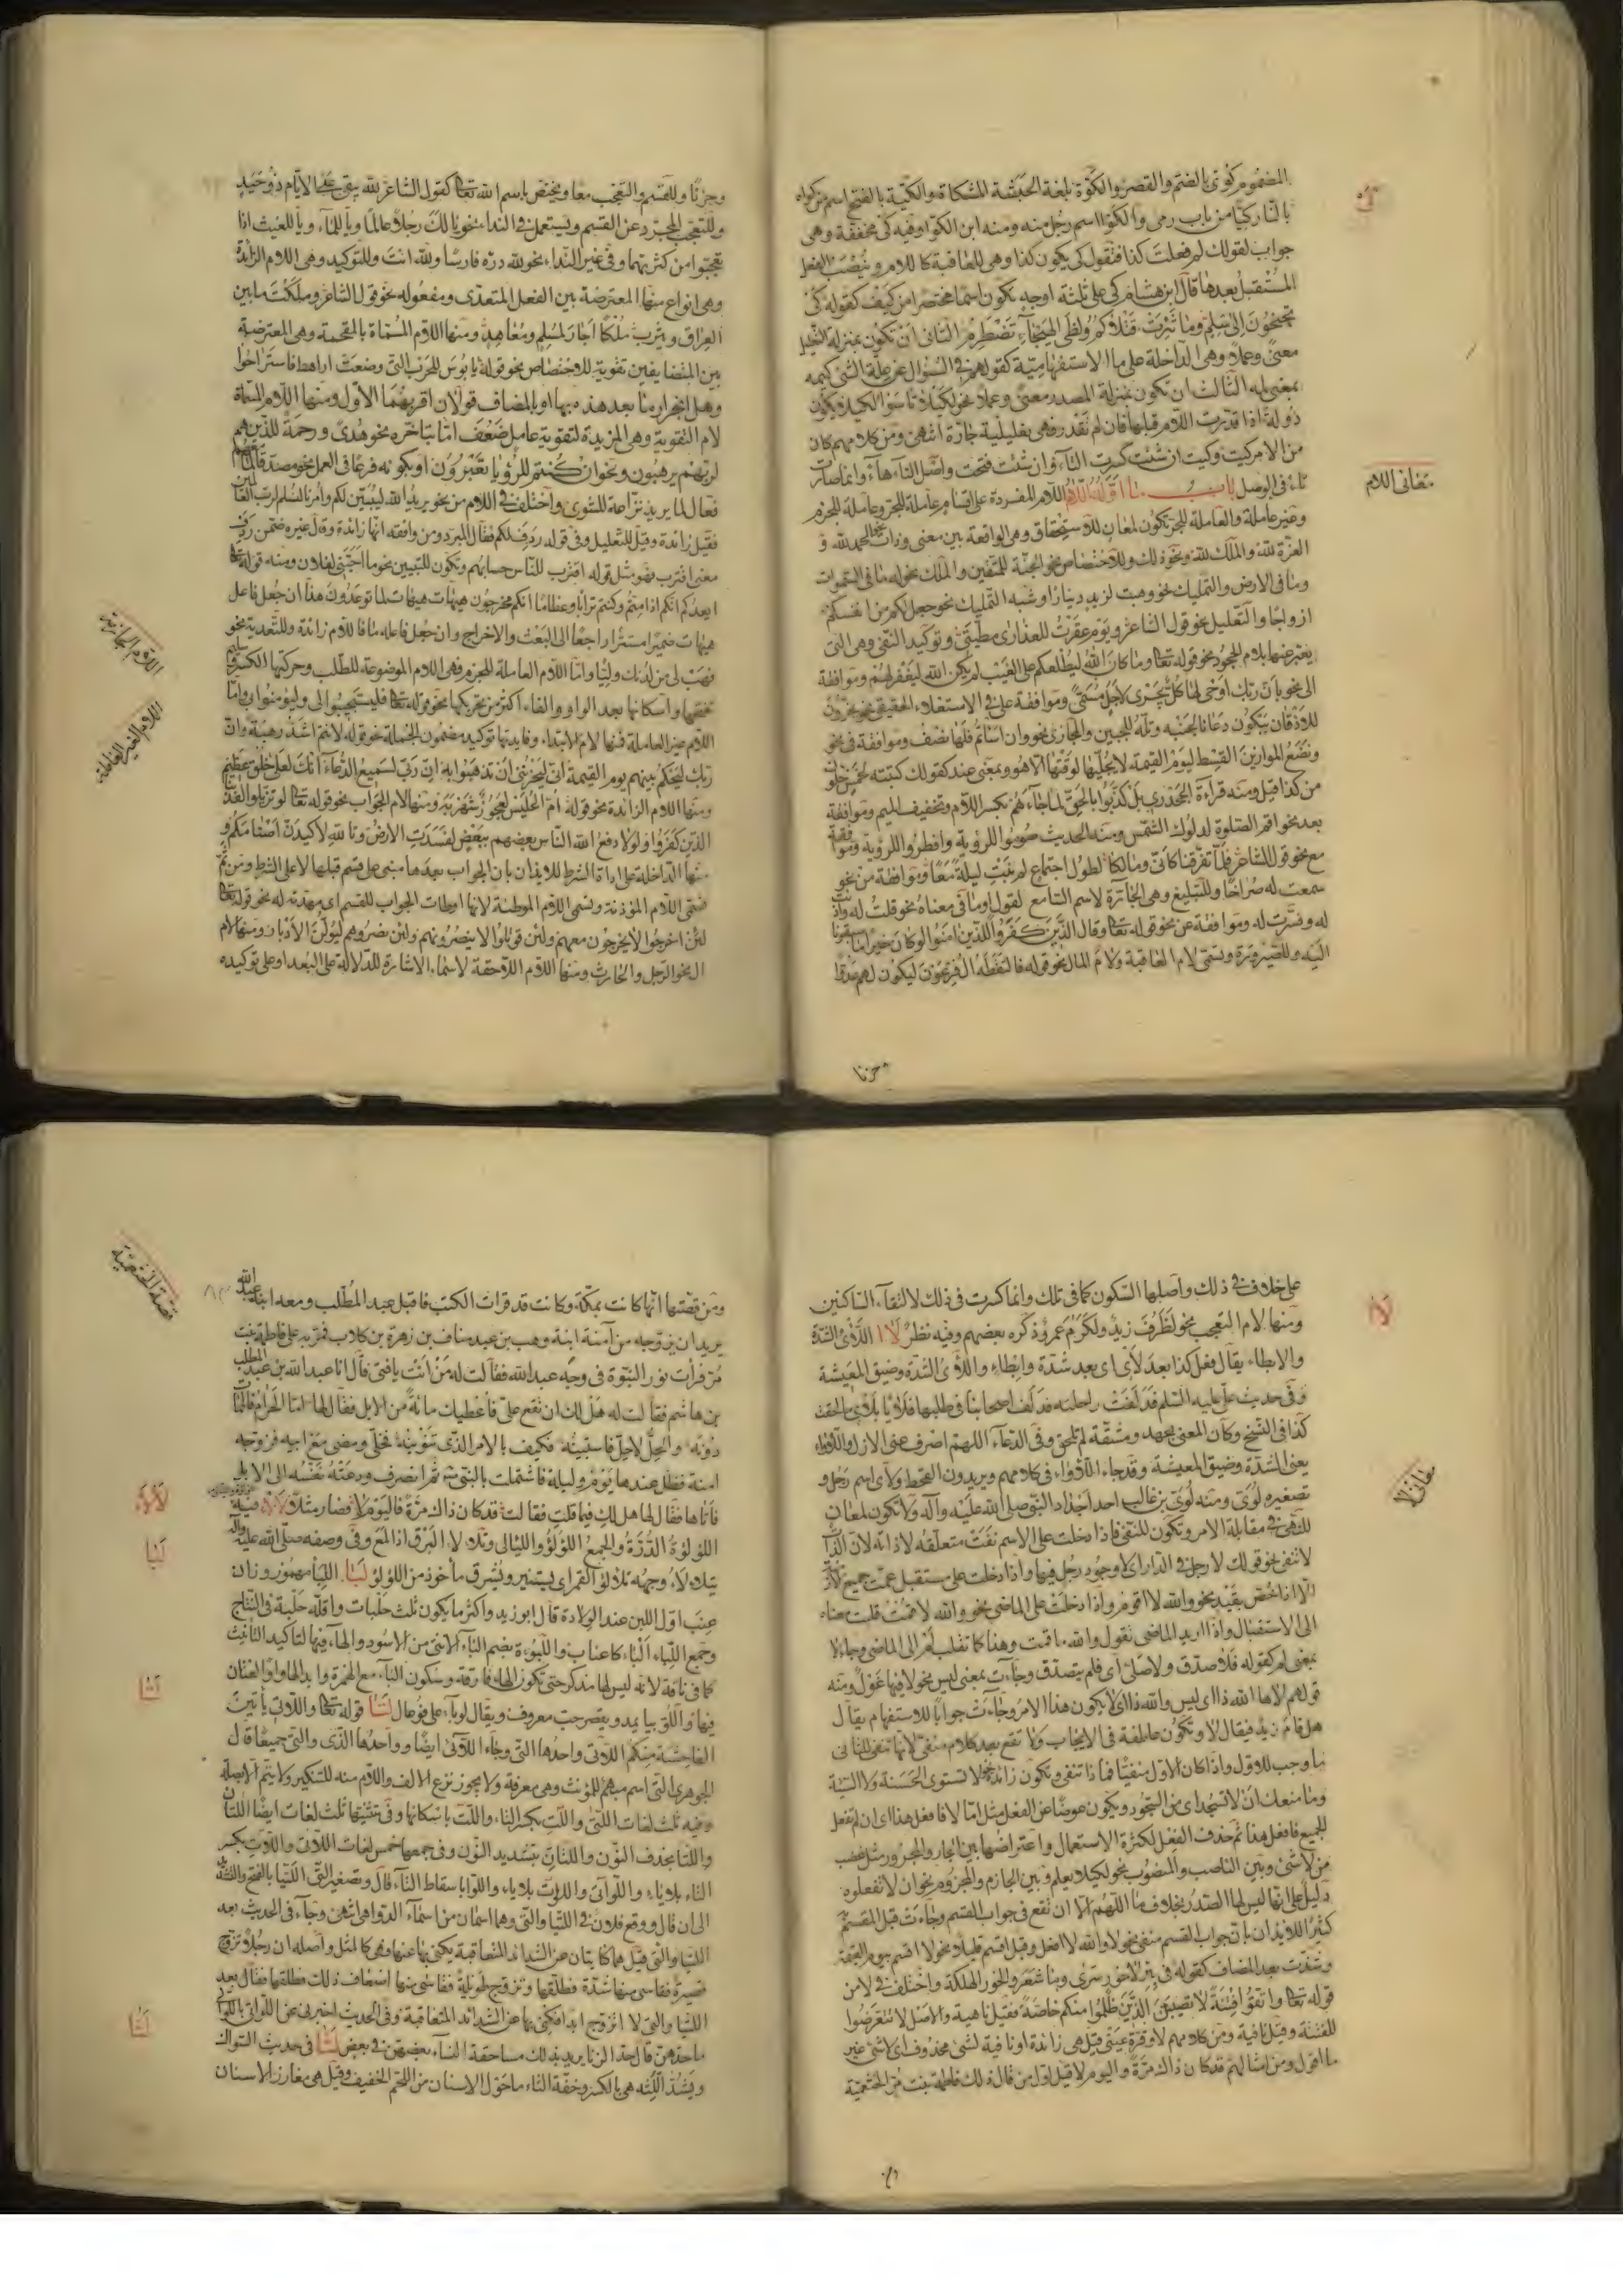 المضموم كقوى بالضم والقصر والكوة بلغة الحبشة المشكاة والكية بالفتح اسم من كواه
بالنار كيا من باب رمى والكوا اسم رجل منه ومنه ابن الكوا وفيه كى مخففة وهى
جواب لقولك لم فعلت كذا فتقول كى يكون كذا وهى للعاقبة كاللام وينصب الفعل
المستقبل بعدها قال ابن هشام كى على ثلثة اوجه تكون اسما مختصرا من كيف كقوله كى
تجنحون الى سلم وما ثئرت قتلاكم ولظى الهيجاء تضطرم الثانى ان تكون بمنزلة التعليل
معنى وعملا وهى الداخلة على ما الاستفهامية كقولهم فى السؤال عن علة الشئ كيمه
بمعنى لمه الثالث ان تكون بمنزلة المصدر معنى وعملا نحو لكيلا تاسوا لكيلا يكون
دولة اذا قدرت اللام قبلها فان لم تقدر فهى تعليلية جارة انتهى ومن كلامهم كان
من الامر كيت وكيت ان شئت كسرت التاء وان شئت فتحت واصل التاء هاء وانما صارت
تاء فى الوصل باب ما اوله اللام اللام المفردة على اقسام عاملة للجر وعاملة للجزم
وغير عاملة والعاملة للجر تكون لمعان للاستحقاق وهى الواقعة بين معنى وذات نحو الحمد لله و
العزة لله والملك لله ونحو ذلك وللاختصاص نحو الجنة للمتقين والملك نحو له ما فى السموات
وما فى الارض والتمليك نحو وهبت لزيد دينارا وشبه التمليك نحو جعل لكم من انفسكم
ازواجا والتعليل نحو قول الشاعر ويوم عقرت للعذارى مطيتى وتوكيد النفى وهى التى
يعبر عنها بلام الجحود نحو قوله تعا وما كان الله ليطلعكم على الغيب لم يكن الله ليغفر لهم وموافقة
الى نحو بان ربك اوحى لها كل يجرى لاجل مسمى وموافقة على فى الاستعلاء الحقيقى نحو يخرون
للاذقان يبكون دعانا لجنبه وتله للجبين والمجازى نحو وان اساتم فلها نصف وموافقة فى نحو
ونضع الموازين القسط ليوم القيمة لا يجليها لوقتها الا هو وبمعنى عند كقولك كتبته لخمس خلون
من كذا قيل ومنه قراءة الجحدرى بل كذبوا بالحق لما جاءهم بكسر اللام وتخفيف الميم وموافقة
بعد نحو اقم الصلوة لدلوك الشمس ومنه الحديث صوموا للرؤية وافطروا للرؤية وموافقة
مع نحو قول الشاعر فلما تفرقنا كانى ومالكا لطول اجتماع لم نبت ليلة معا وموافقة من نحو
سمعت له صراخا وللتبليغ وهى الجارة لاسم السامع لقول او ما فى معناه نحو قلت له واذنت
له وفسرت له وموافقة عن نحو قوله تعا وقال الذين كفروا للذين امنوا لو كان خيرا ما سبقونا
اليه وللصيرورة وتسمى لام العاقبة ولام المال نحو قوله فالتقطه ال فرعون ليكون لهم عدوا
وحزنا
لوى
معانى اللام
وحزنا وللقسم والتعجب معا ويختص باسم الله تعا كقول الشاعر لله يبقى على الايام ذو حيد
وللتعجب المجرد عن القسم ويستعمل فى الندا نحو يا لك رجلا عالما ويا للماء ويا للغيث اذا
تعجبوا من كثرتهما وفى غير النداء نحو لله دره فارسا ولله انت وللتوكيد وهى اللام الزائدة
وهى انواع منها المعترضة بين الفعل المتعدى ومفعوله نحو قول الشاعر وملكت ما بين
العراق ويثرب ملكا اجار لمسلم ومعاهد ومنها اللام المسماة بالمقحمة وهى المعترضة
بين المتضايفين تقوية للاختصاص نحو قوله يا بؤس للحرب التى وضعت اراهط فاستراحوا
وهل انجرار ما بعد هذه بها او بالمضاف قولان اقربهما الاول ومنها اللام المسماة
لام التقوية وهى المزيدة لتقوية عامل ضعف اما بتاخره نحو هدى ورحمة للذين هم
لربهم يرهبون ونحو ان كنتم للرؤيا تعبرون او بكونه فرعا فى العمل نحو مصدقا لما معهم
فعال لما يريد نزاعة للشوى واختلف فى اللام من نحو يريد الله ليبين لكم وامرنا لنسلم لرب العالمين
فقيل زائدة وقيل للتعليل وفى قوله ردف لكم فقال المبرد ومن وافقه انها زائدة وقال غيره ضمن ردف
معنى اقترب فهو مثل قوله اقترب للناس حسابهم وتكون للتبيين نحو ما احبنى لفلان ومنه قوله تعا
ايعدكم انكم اذا متم وكنتم ترابا وعظاما انكم مخرجون هيهات هيهات لما توعدون هذا ان جعل فاعل
هيهات ضميرا مستترا راجعا الى البعث والاخراج وان جعل فاعله ما فاللام زائدة وللتعدية نحو
فهب لى من لدنك وليا واما اللام العاملة للجزم فهى اللام الموضوعة للطلب وحركتها الكسر وسليم
تفتحها واسكانها بعد الواو والفاء اكثر من تحريكها نحو قوله تعا فليستجيبوا لى وليؤمنوا بى واما
اللام غير العاملة فمنها لام الابتداء وفايدتها توكيد مضمون الجملة نحو قوله لانتم اشد رهبة وان
ربك ليحكم بينهم يوم القيمة انى ليحزننى ان تذهبوا به ان ربى لسميع الدعاء انك لعلى خلق عظيم
ومنها اللام الزائدة نحو قوله ام الحليس لعجوز شهربه ومنها لام الجواب نحو قوله تعا لو تزيلوا لعذبنا
الذين كفروا ولولا دفع الله الناس بعضهم ببعض لفسدت الارض وتالله لاكيدن اصنامكم و
منها الداخلة على اداة الشرط للايذان بان الجواب بعدها مبنى على قسم قبلها لا على الشرط ومن ثم
تسمى اللام المؤذنة وتسمى اللام الموطئة لانها اوطات الجواب للقسم اى مهدته له نحو قوله تعا
لئن اخرجوا لا يخرجون معهم ولئن قوتلوا لا ينصرونهم ولئن نصروهم ليولن الادبار ومنها لام
ال نحو الرجل والحارث ومنها اللام اللاحقة لاسماء الاشارة للدلالة على البعد او على توكيده
اللام الجازمة
اللام الغير العاملة
على خلاف فى ذلك واصلها السكون كما فى تلك وانما كسرت فى ذلك لالتقاء الساكنين
ومنها لام التعجب نحو لظرف زيد ولكرم عمرو ذكره بعضهم وفيه نظر لاا اللاى الشدة
والابطاء يقال فعل كذا بعد لاى اى بعد شدة وابطاء واللاى الشدة وضيق المعيشة
وفى حديث على عليه السلم فدلفت راحلته فدلف اصحابنا فى طلبها فلايا بلاى ما لحقت
كذا فى النسخ وكان المعنى بجهد ومشقة لم تلحق وفى الدعاء اللهم اصرف عنى الازل واللاواء
يعنى الشدة وضيق المعيشة وقد جاء اللاواء فى كلامهم ويريدون القحط ولاى اسم رجل و
تصغيره لوى ومنه لوى بن غالب احد اجداد النبى صلى الله عليه وآله ولا تكون لمعان
للنهى فى مقابلة الامر وتكون للنفى فاذا دخلت على الاسم نفت متعلقه لا ذاته لان الذات
لا تنفى نحو قولك لا رجل فى الدار اى لا وجود رجل فيها واذا دخلت على مستقبل عمت جميع الازمنة
الا اذا خص بقيد نحو والله لا اقوم واذا دخلت على الماضى نحو والله لا قمت قلبت معناه
الى الاستقبال واذا اريد الماضى تقول والله ما قمت وهذا كما تقلب لم الى الماضى وجاء لا
بمعنى لم كقوله فلا صدق ولا صلى اى فلم يتصدق وجاءت بمعنى ليس نحو لا فيها غول ومنه
قولهم لاها الله ذا اى ليس والله ذا اى لا يكون هذا الامر وجاءت جوابا للاستفهام يقال
هل قام زيد فيقال لا وتكون عاطفة فى الايجاب ولا تقع بعد كلام منفى لانها تنفى للثانى
ما وجب للاول واذا كان الاول منفيا فما ذا تنفى وتكون زائدة نحو لا تستوى الحسنة ولا السيئة
وما منعك ان لا تسجد اى من السجود ويكون عوضا عن الفعل مثل اما لا فافعل هذا اى ان لم تفعل
الجميع فافعل هذا ثم حذف الفعل لكثرة الاستعمال واعتراضها بين الجار والمجرور مثل غضب
من لا شئ وبين الناصب والمنصوب نحو لكيلا يعلم وبين الجازم والمجزوم نحو ان لا تفعلوه
دليل على انها ليس لها الصدر بخلاف ما اللهم الا ان تقع فى جواب القسم وجاءت قبل القسم
كثيرا للايذان بان جواب القسم منفى نحو لا والله لا افعل وقبل اقسم قليلا نحو لا اقسم بيوم القيمة
وشذت بعد المضاف كقوله فى بئر لا حور سرى وما شعر والحور الهلكة واختلف فى لا من
قوله تعا واتقوا فتنة لا تصيبن الذين ظلموا منكم خاصة فقيل ناهية والاصل لا تتعرضوا
للفتنة وقيل نافية ومن كلامهم لا وقرة عينى قيل هى زائدة او نافية لشئ محذوف اى لا شئ غير
ما اقول ومن امثالهم قد كان ذاك مرة واليوم لا قيل اول من قال ذلك فاطمة بنت مر الخثعمية
لاا
معانى لا
ومن قصتها انها كانت بمكة وكانت قد قرات الكتب فاقبل عبد المطلب ومعه ابنه عبد الله
يريد ان يزوجه من آمنة ابنة وهب بن عبد مناف بن زهرة بن كلاب فمر به على فاطمة بنت
مر فرات نور النبوة فى وجه عبد الله فقالت له من انت يا فتى قال انا عبد الله بن عبد المطلب
بن هاشم فقالت له هل لك ان تقع على فاعطيك مائة من الابل فقال لها اما الحرام فالممات
دونه والحل لا حل فاستبينه فكيف بالامر الذى تنوينه فخلى ومضى مع ابيه فزوجه
امنة فظل عندها يومه وليلة فاشتملت بالنبى ثم انصرف ودعته نفسه الى الابل
فاتاها فقال لها هل لك فيما قلت فقالت قد كان ذاك مرة فاليوم لا فصار مثلا لالا فيه
اللؤلؤة الدرة والجمع اللؤلؤ والليالى وتلالا البرق اذا لمع وفى وصفه صلى الله عليه وآله
يتلالا وجهه تلالؤ القمر اى يستنير ويشرق ماخوذ من اللؤلؤ لبا اللبا مهموز وزان
عنب اول اللبن عند الولادة قال ابو زيد واكثر ما يكون ثلث حلبات واقله حلبة فى النتاج
وجمع اللباء الباء كاعناب واللبوءة بضم الباء الانثى من الاسود والهاء فيها لتاكيد التانيث
كما فى ناقة لانه ليس لها مذكر حتى تكون الهاء فارقة وسكون الباء مع الهمزة وابدالها واوا لغتان
فيها واللوبيا يمد ويقصر حب معروف ويقال لوباء على فوعال لتا قوله تعا واللاتى ياتين
الفاحشة منكم اللاتى واحدها التى وجاء اللائى ايضا وواحدها الذى والتى جميعا قال
الجوهرى التى اسم مبهم للمؤنث وهى معرفة ولا يجوز نزع الالف واللام منه للتنكير ولا يتم الا بصلة
وفيه ثلث لغات اللتى واللت بكسر التاء واللت باسكانها وفى تثنيتها ثلث لغات ايضا اللتان
واللتا بحذف النون واللتان بتشديد النون وفى جمعها خمس لغات اللاتى واللات بكسر
التاء بلا ياء واللواتى واللوات بلا ياء واللوا باسقاط التاء قال وتصغير التى اللتيا بالفتح والتشديد
الى ان قال ووقع فلان فى اللتيا والتى وهما اسمان من اسماء الدواهى انتهى وجاء فى الحديث بعد
اللتيا والتى قيل هما كنايتان عن الشدائد المتعاقبة يكنى بها عنها وهى كالمثل واصله ان رجلا تزوج
قصيرة فقاسى منها شدة فطلقها وتزوج طويلة فقاسى منها اضعاف ذلك فطلقها فقال بعد
اللتيا والتى لا اتزوج ابدا فكنى بها عن الشدائد المتعاقبة وفى الحديث اخبرنى عن اللواتى باللواتى
ما حدهن قال حد الزنا يريد بذلك مساحقة النساء بعضهن فى بعض لثا فى حديث السواك
ويشد اللثة هى بالكسر وخفة الثاء ما حول الاسنان من اللحم الخفيف وقيل هى مغارز الاسنان
قصة الخثعمية
لالا
لبا
لتا
لثا